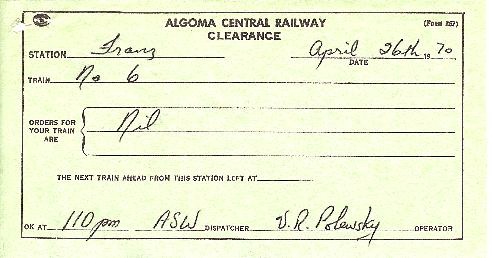 ALGOMA CENTRAL RAILWAY (Form 257)
CLEARANCE
STATION Franz April 26th 1970
DATE
TRAIN No 6
ORDERS FOR
YOUR TRAIN Nil
ARE
THE NEXT TRAIN AHEAD FROM THIS STATION LEFT AT
OK AT 110 pm ASW DISPATCHER V.R. Polewsky OPERATOR